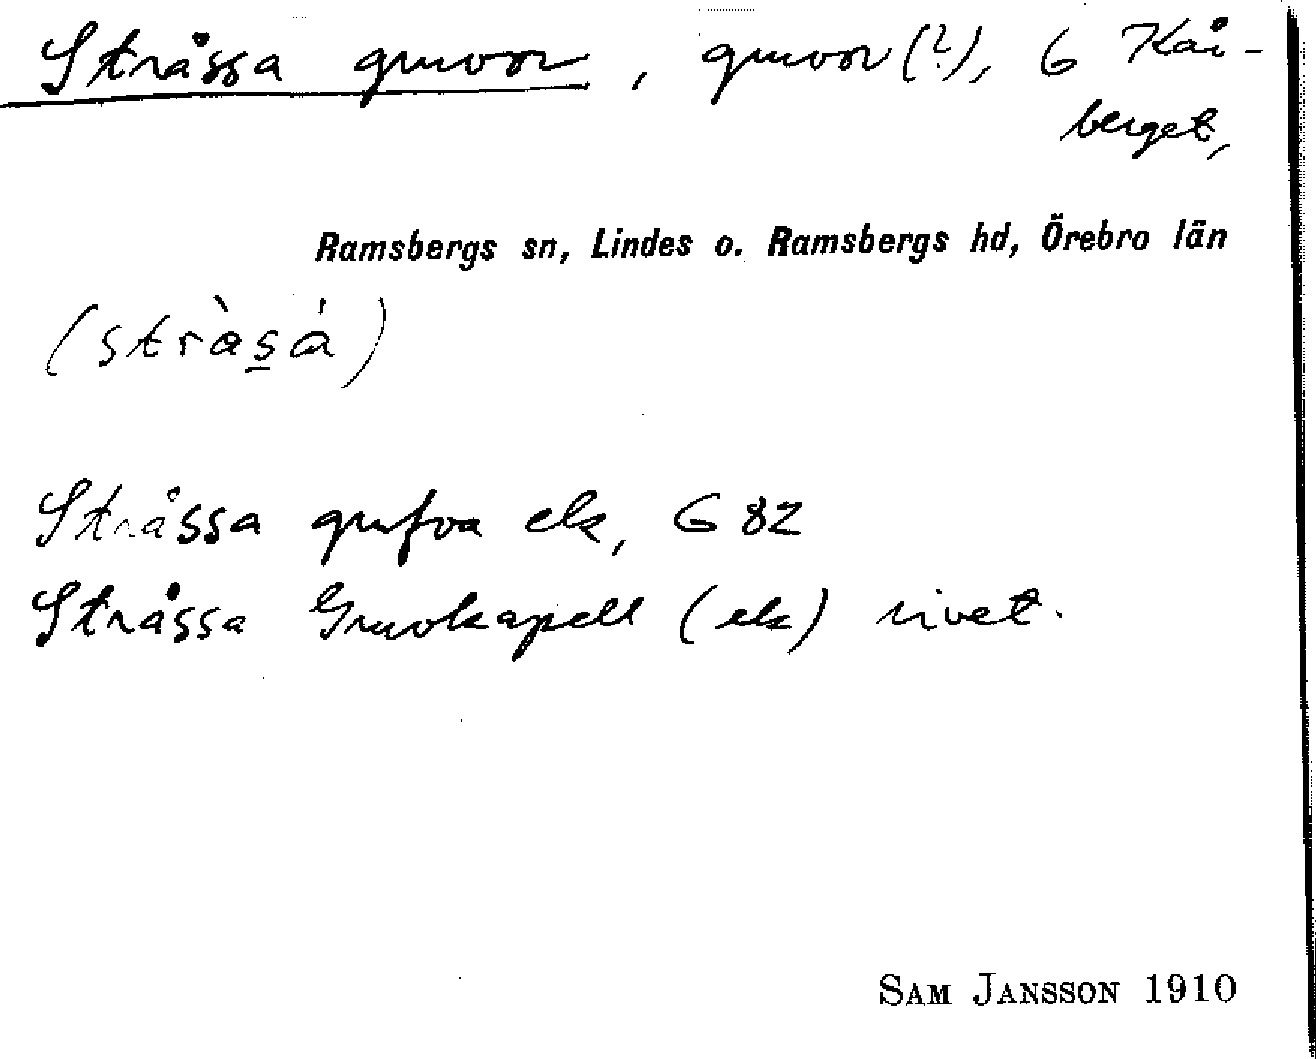 Stråssa gruvor, gruvor(?), 6 Kåi-
berget,
Ramsbergs sn, Lindes o. Ramsbergs hd, Örebro län
(stràs̲á)
Stråssa grufva ek, G 82
Stråssa Gruvkapell (ek) rivet.
SAM JANSSON 1910